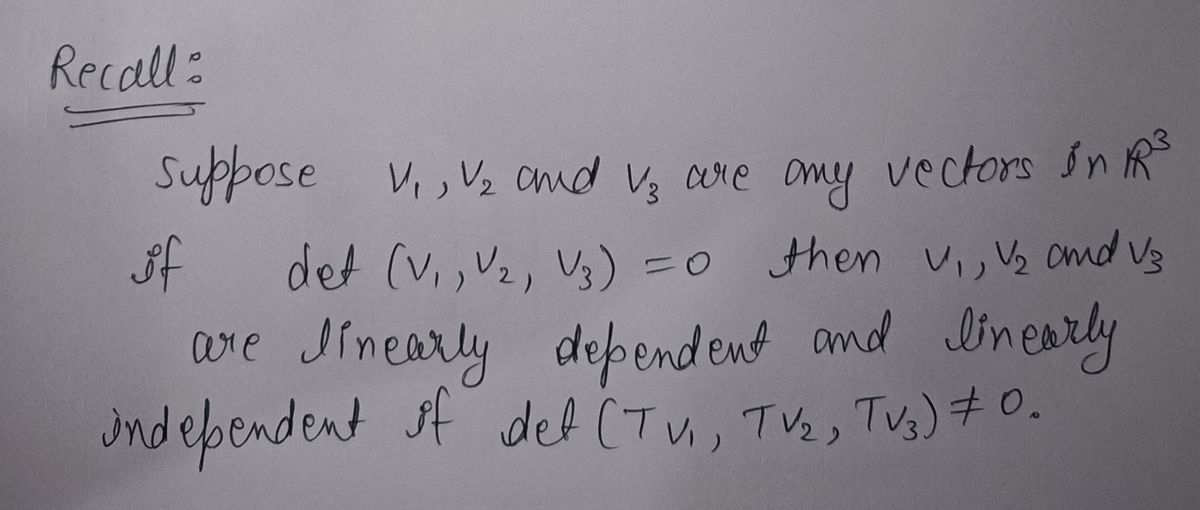 Recall:
Suppose V₁, V₂ and V₃ are any vectors in ℝ³
if det (V₁, V₂, V₃) = 0 then V₁, V₂ and V₃
are linearly dependent and linearly
independent if det (TV₁, TV₂, TV₃) ≠ 0.